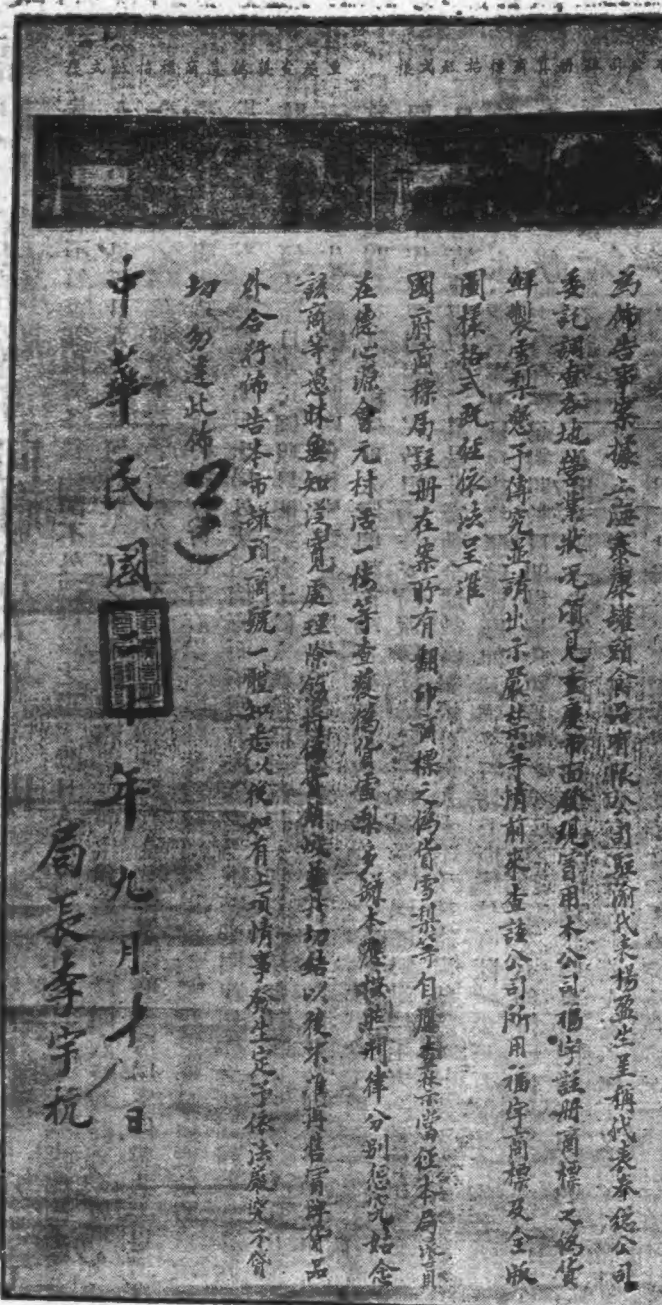 為佈告事案據上海泰康罐頭食品有限公司駐渝代表楊盈生呈稱代表奉總公司
委託調查各地營業狀況頃見重慶市面發現冒用本公司福字註冊商標之偽貨
鮮製雪梨懇予偵究並請出示嚴禁等情前來查該公司所用福字商標及全版
圖樣格式既經依法呈准
國府商標局註冊在案所有翻印商標之偽貨雪梨等自應查禁當經本局派員
在德心源會元村活一樓等查獲偽貨雪梨多罐本應按照刑律分別懲究姑念
該商等過蚨無知從寬處理除飭將偽貨銷燬並具切結以後不準再售冒牌貨品
外合行佈告本市罐頭商號一體知悉以後如有上項情事發生定予依法嚴究不貸
切切勿違此佈
中華民國二十年九月十八日
局長李宇杭